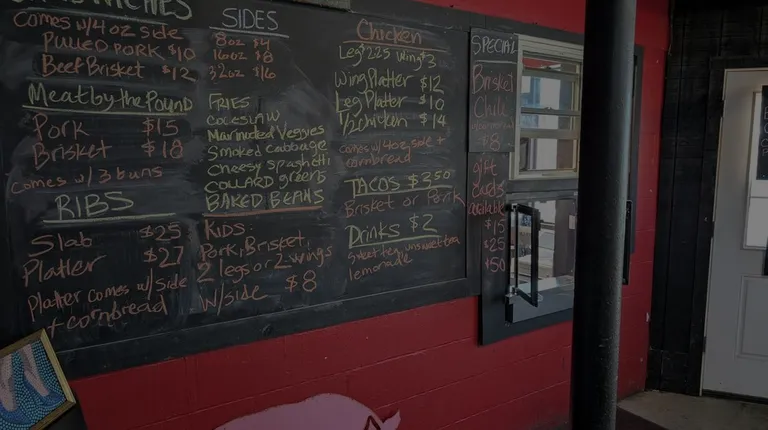 SANDWICHES
Comes w/4 oz side
PULLED PORK $10
Beef Brisket $12
Meat by the Pound
Pork $15
Brisket $18
comes w/ 3 buns
RIBS
Slab $25
Platter $27
Platter comes w/side
+ cornbread
SIDES
8oz $4
16oz $8
32oz $16
FRIES
COLESLAW
Marinated Veggies
Smoked Cabbage
Cheesy spaghetti
COLLARD greens
BAKED BEANS
KIDS:
Pork, Brisket,
2 legs or 2 wings
w/side $8
Chicken
Leg $2.25 Wing $3
Wing Platter $12
Leg Platter $10
1/2 chicken $14
comes w/4oz side +
cornbread
TACOS $3.50
Brisket or Pork
Drinks $2
sweet tea unsweet tea
lemonade
SPECIAL
Brisket
Chili
$8
gift
Cards
available
$15
$25
$50